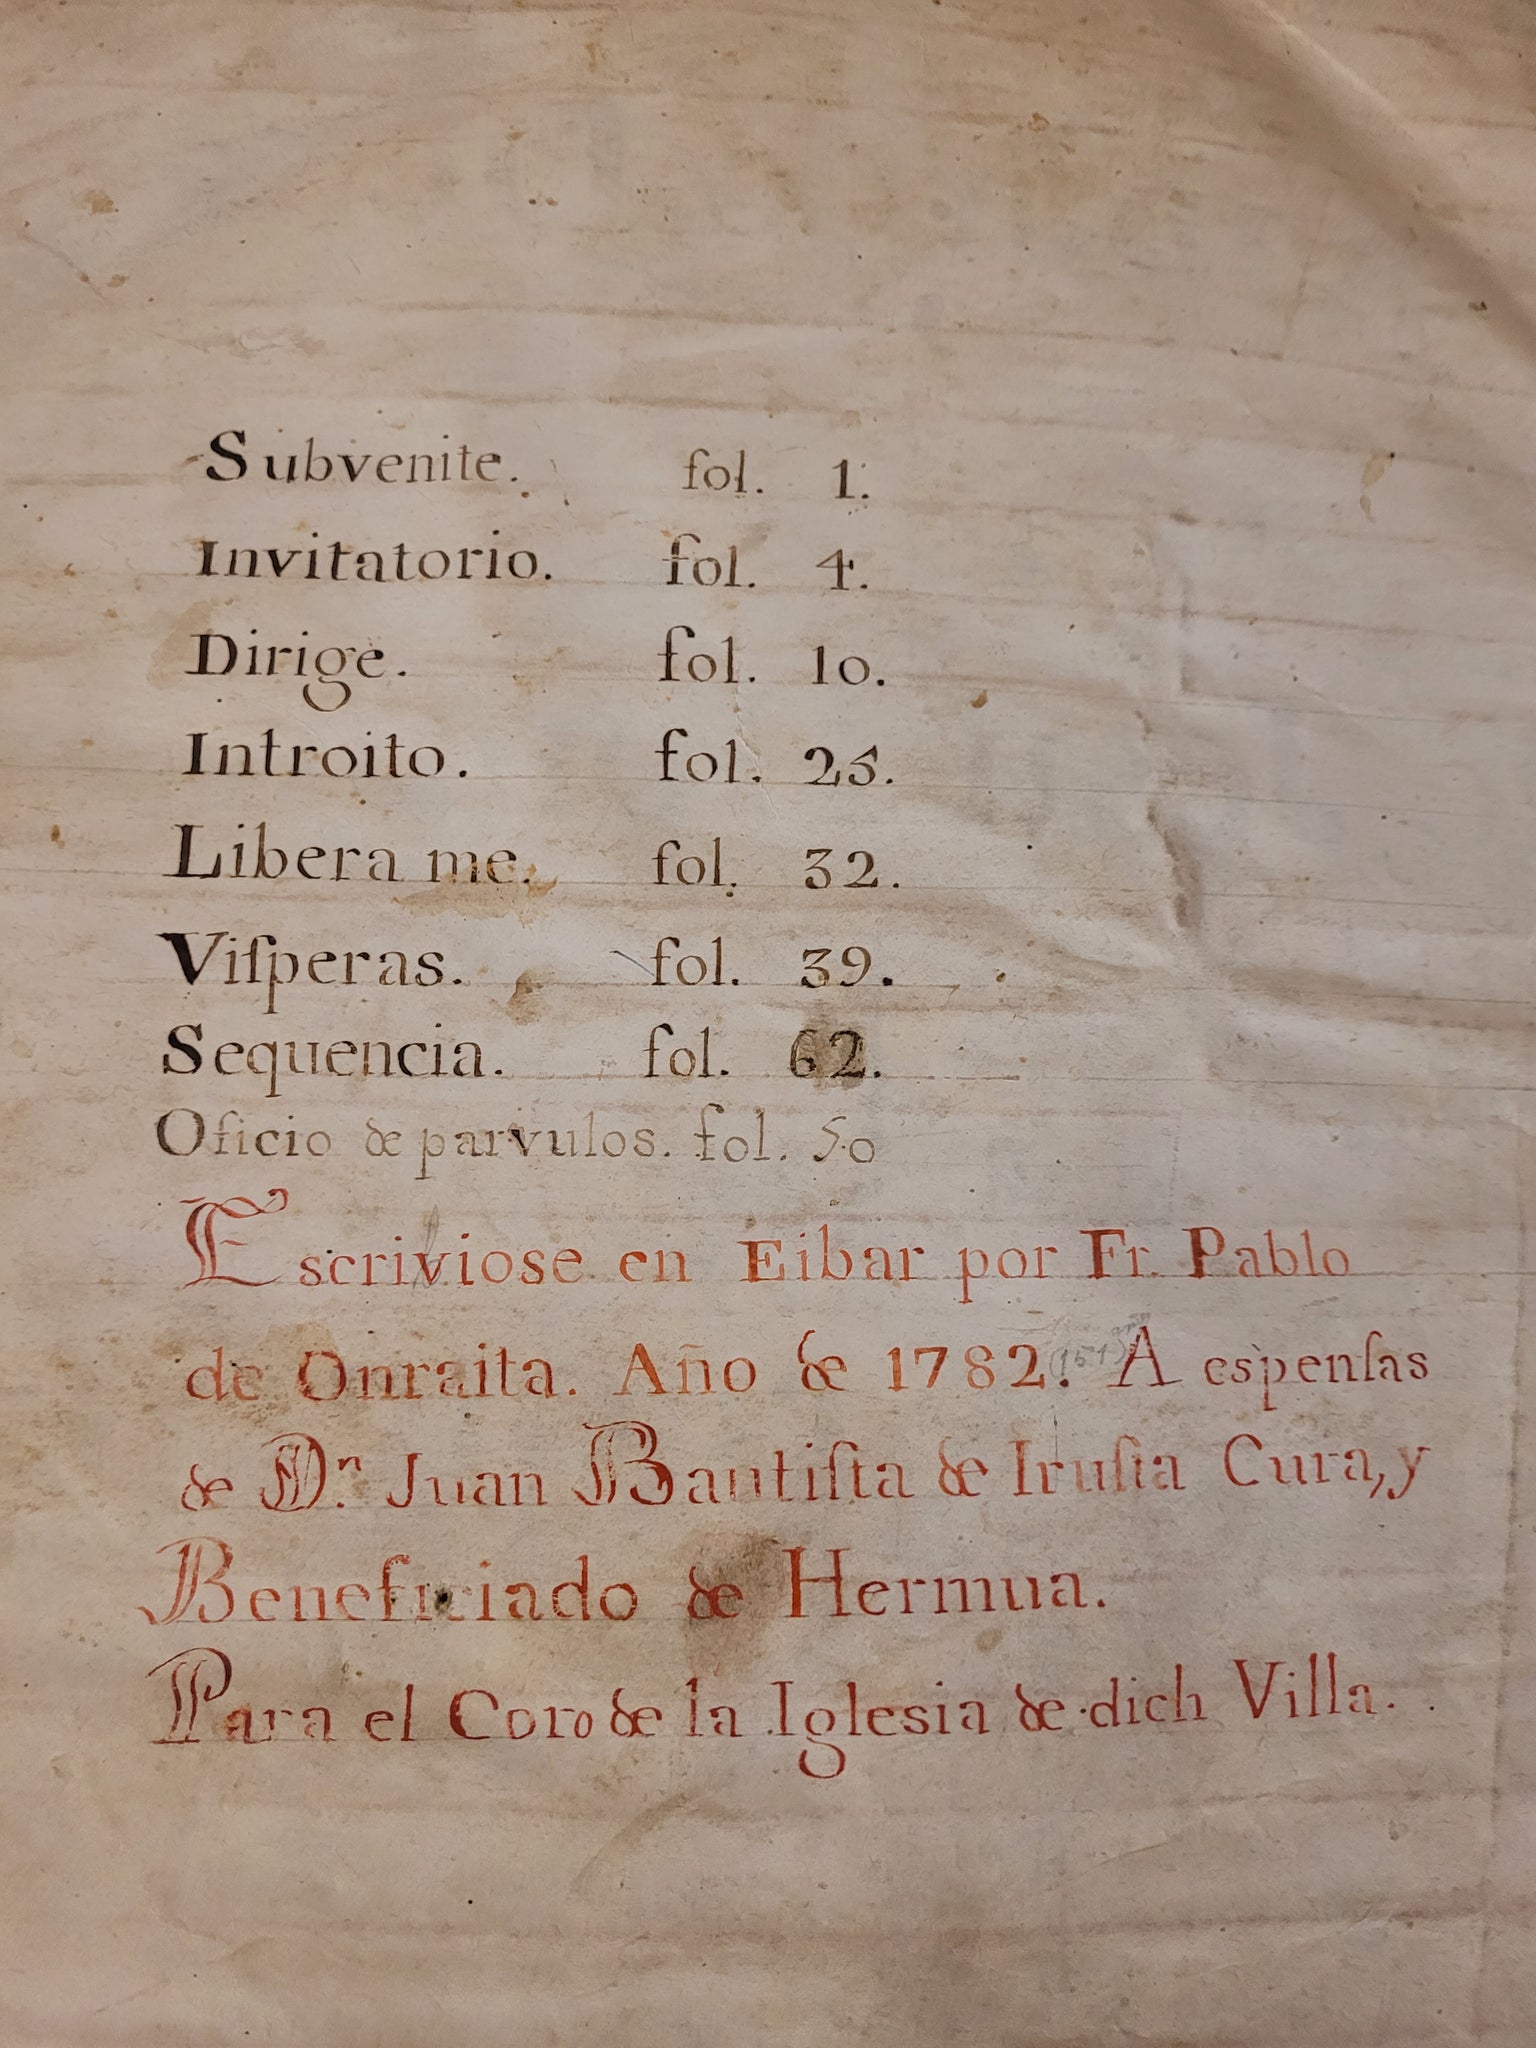 Subvenite. fol. 1.
Invitatorio. fol. 4.
Dirige. fol. 10.
Introito. fol. 25.
Libera me. fol. 32.
Viſperas. fol. 39.
Sequencia. fol. 62.
Oficio de parvulos. fol. 50
Escriviose en Eibar por Fr. Pablo
de Onraita. Año de 1782. A espenſas
de Dⁿ. Juan Bautiſta de Iruſta Cura, y
Beneficiado de Hermua.
Para el Coro de la Iglesia de dich Villa.